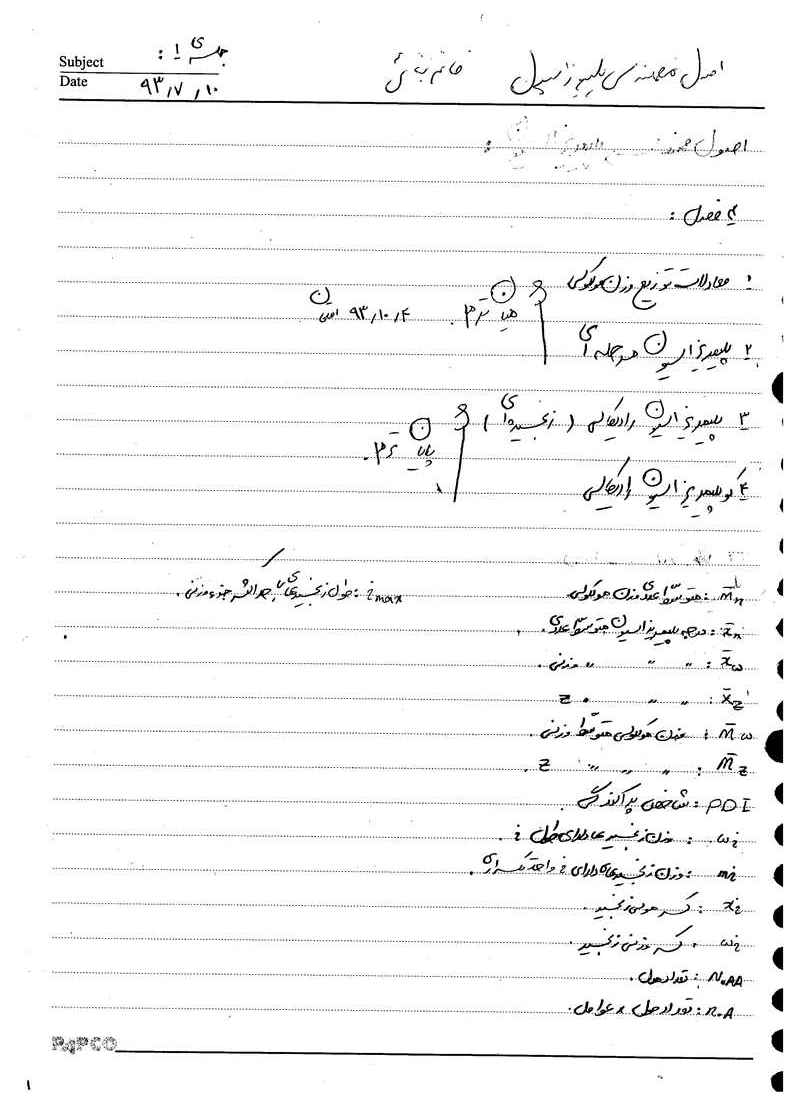 اصول مهندسی پلیمریزاسیون خانم بنائی جلسه ی 1 : Subject
Date ۹۳/۷/۱۰
اصول مهندسی پلیمریزاسیون :
۴ فصل :
۱ معادلات توزیع وزن مولکولی
میان ترم. ۹۳/۱۰/۴
۲ پلیمریزاسیون مرحله ای
۳ پلیمریزاسیون رادیکالی (زنجیره ای)
پایان ترم.
۴ کوپلیمریزاسیون رادیکالی
M̄n : متوسط عددی وزن مولکولی imax : طول زنجیرهای با حداکثر جزء وزنی.
x̄n : درجه پلیمریزاسیون متوسط عددی.
x̄w : " " " وزنی.
x̄z : " " " z
M̄w : وزن مولکولی متوسط وزنی.
M̄z : " " " z.
PDI : شاخص پراکندگی.
wi : وزن زنجیرهای دارای طول i.
mi : وزن زنجیرهای دارای i واحد تکراری.
xi : کسر مولی زنجیر.
wi : کسر وزنی زنجیر.
N.AA : تعداد مول.
n.A : تعداد مول × عوامل.
PAPCO
۱